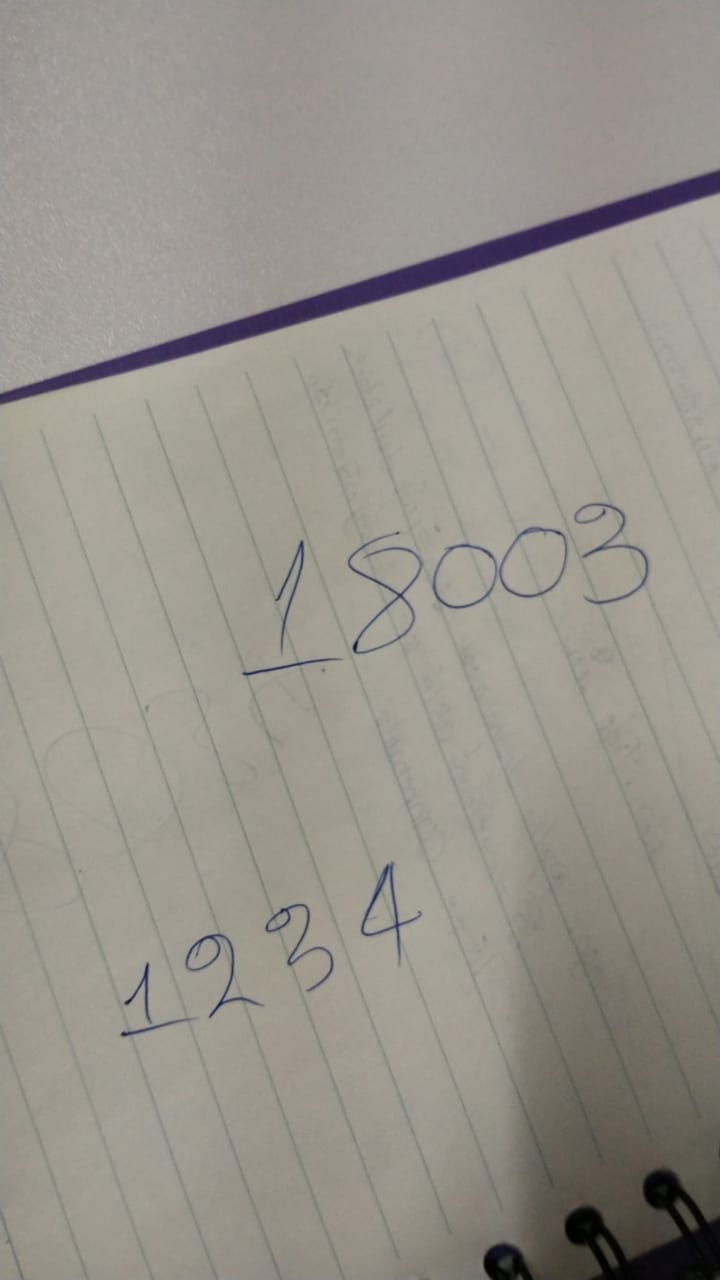 18003
1234